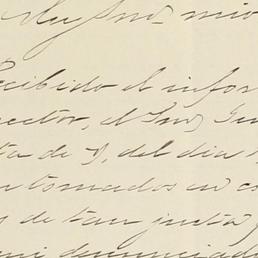 Muy Snr mio
Recibido el infor
ector, el Snr
ta de S, del dia
tomados en co
de tan justa
denunciad